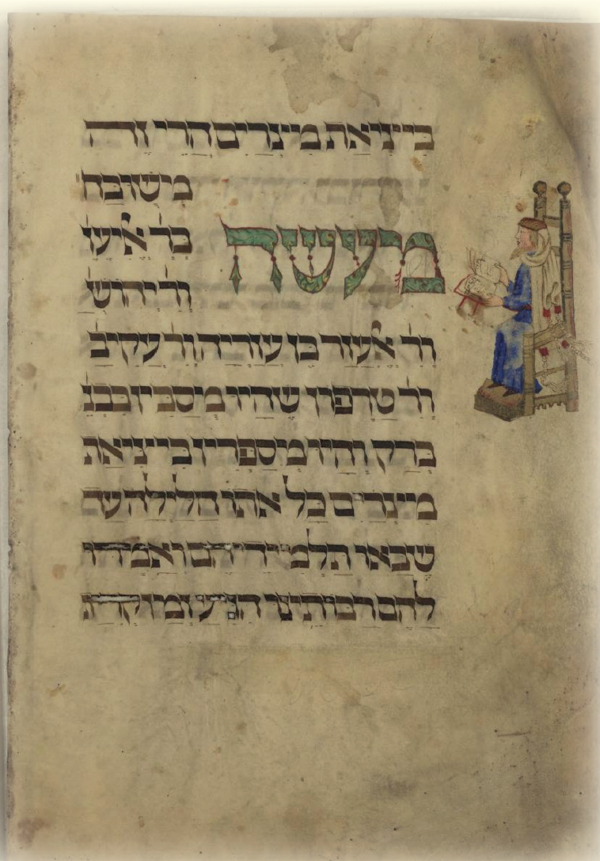 ביציאת מצרים הרי זה
משובח
מעשה
בר אליעז
ור יהוש
ור אלעזר בן עזריה ור עקיב
ור טרפון שהיו מסבין בבנ
ברק והיו מספרין ביציאת
מצרים כל אתו הלילה עד
שבאו תלמידיהם ואמרו
להם רבותינו הגיע זמן קרית